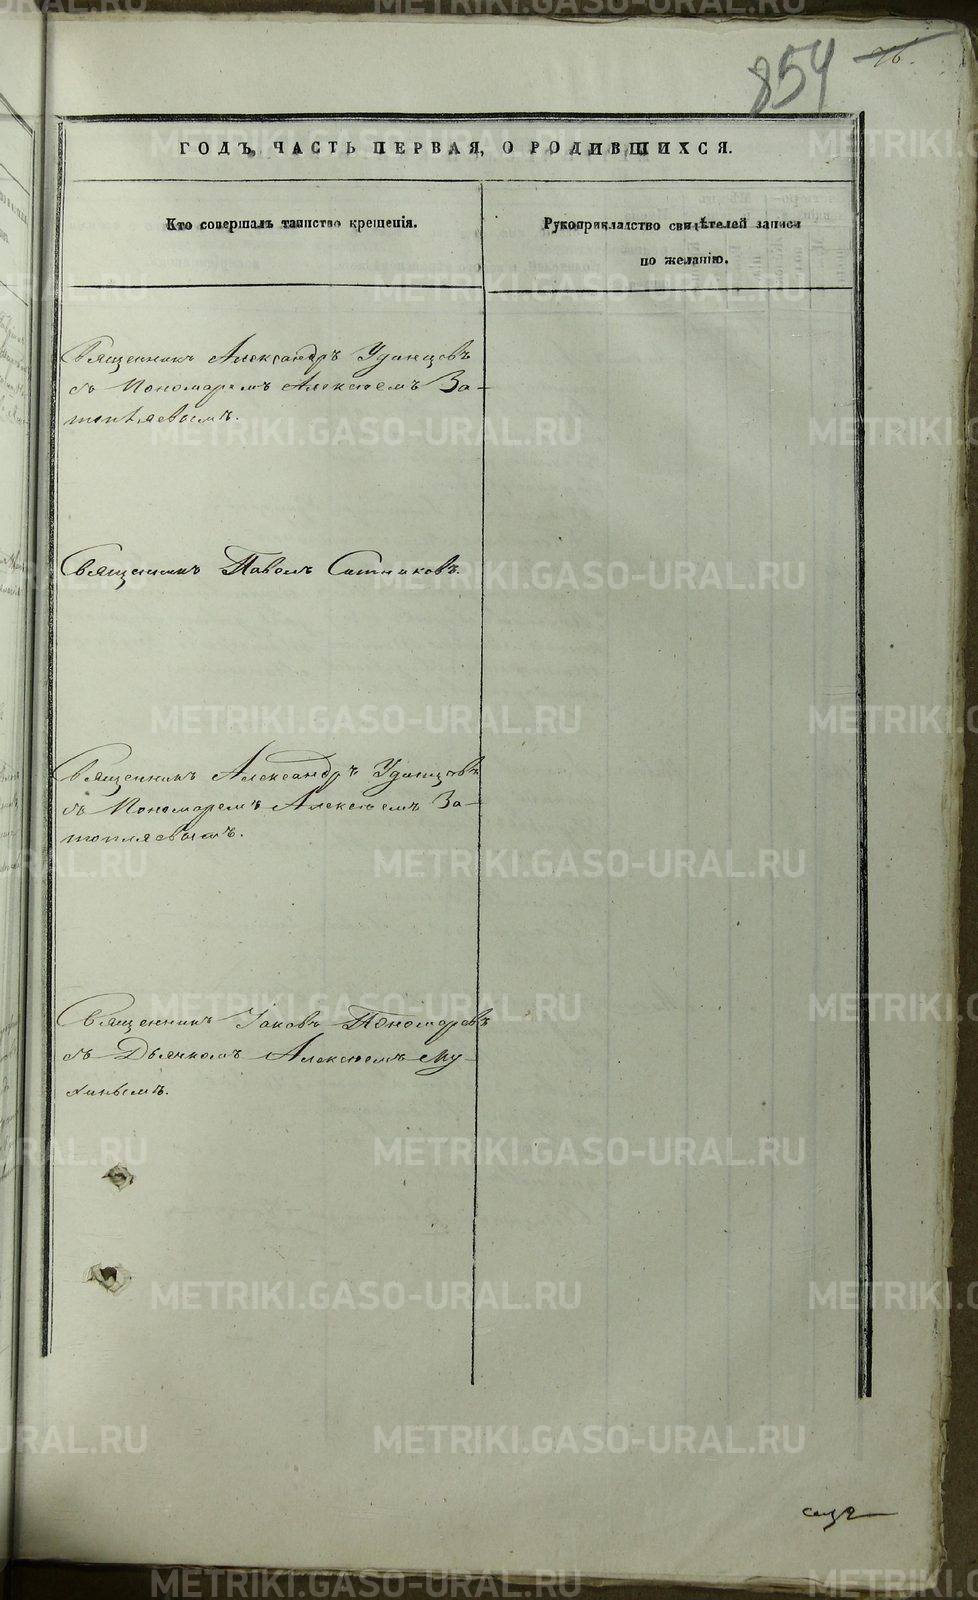 854 76.
ГОДЪ, ЧАСТЬ ПЕРВАЯ, О РОДИВШИХСЯ.
Кто совершалъ таинство крещенія.
Рукоприкладство свидѣтелей записи
по желанію.
Священникъ Александръ Удинцовъ
съ Пономаремъ Алексѣемъ За-
топляевымъ.
Священникъ Павелъ Ситниковъ.
Священникъ Александръ Удинцовъ
съ Пономаремъ Алексѣемъ За-
топляевымъ.
Священникъ Іаковъ Пономаревъ
съ Дьячкомъ Алексѣемъ Му-
хинымъ.
METRIKI.GASO-URAL.RU